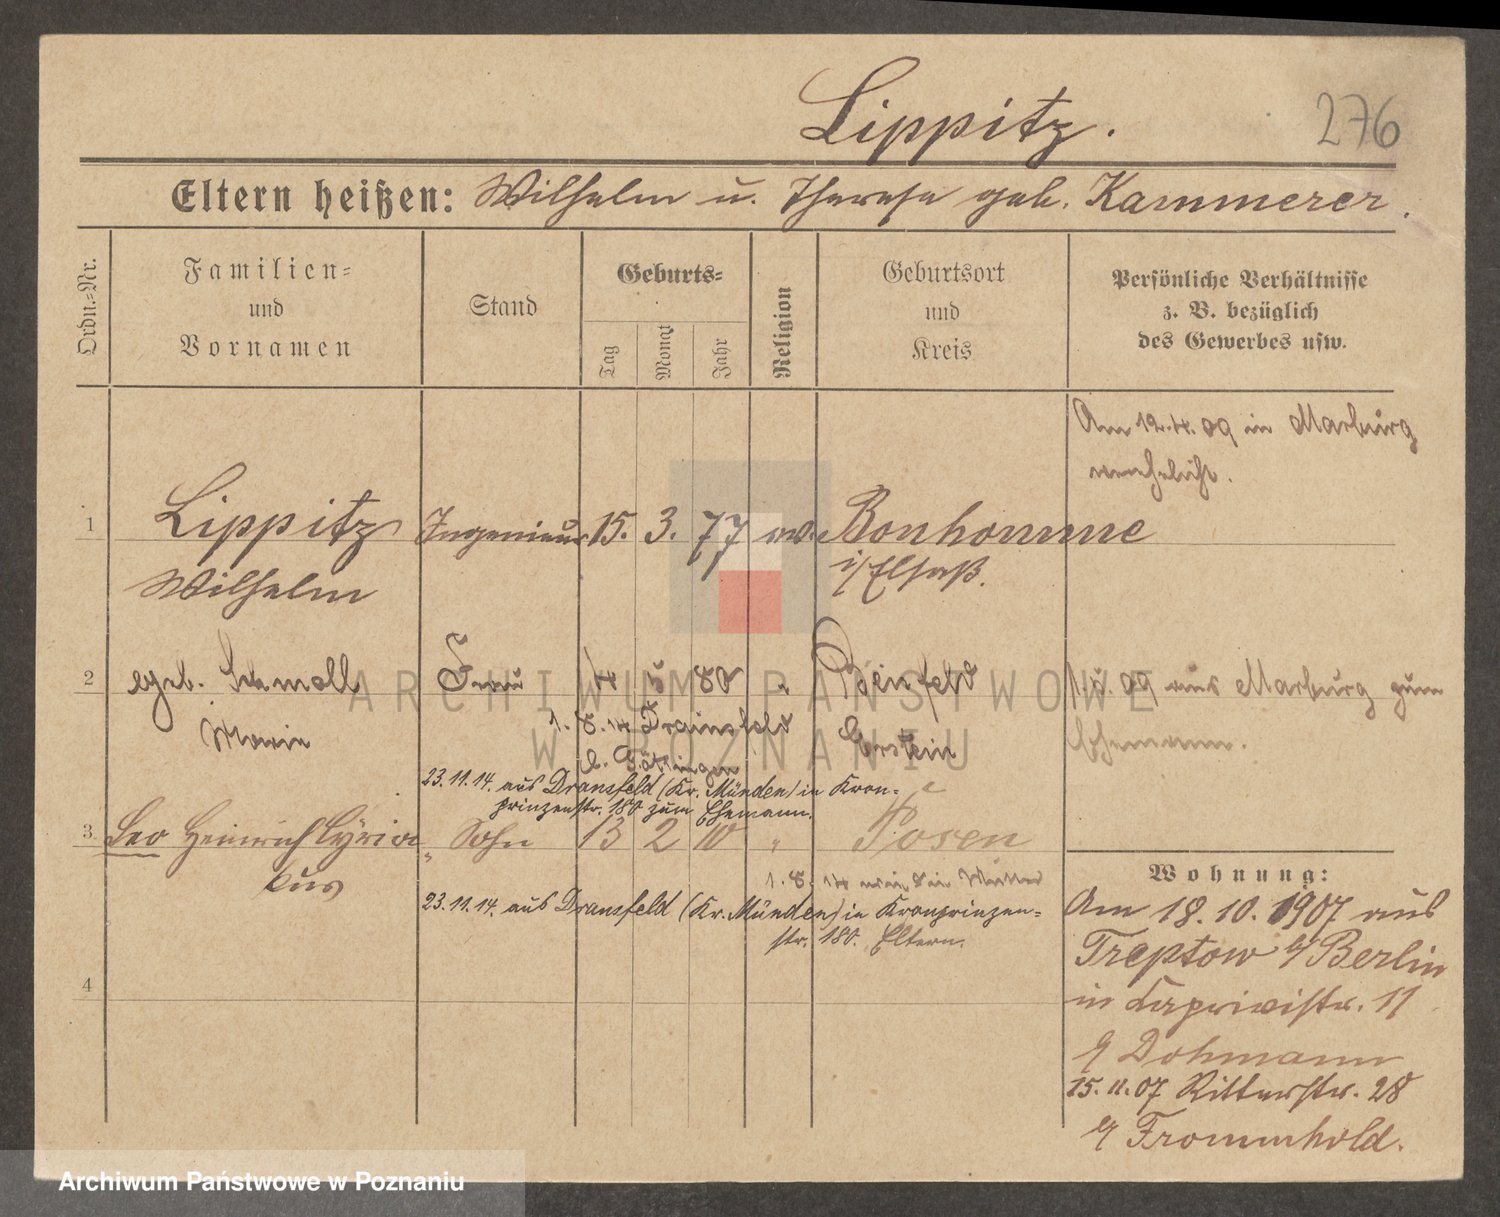 Lippitz.
276
Eltern heißen: Wilhelm u. Therese geb. Kammerer.
Ordn.=Nr.
Familien=
und
Vornamen
Stand
Geburts=
Tag
Monat
Jahr
Religion
Geburtsort
und
Kreis
Persönliche Verhältnisse
z. B. bezüglich
des Gewerbes usw.
Am 12.4.09 in Marburg
verehelicht.
1 Lippitz Ingenieur 15. 3. 77 Bonhomme
Wilhelm
i/Elsaß.
2 geb. Schmoll Frau 4 5 80 " Benfeld
Maria
Erstein
1. 8. 14 Dransfeld
b. Göttingen
09 aus Marburg zum
Ehemann.
23.11.14. aus Dransfeld (Kr. Münden) in Kron=
prinzenstr. 180 zum Ehemann.
3 Leo Heinrich Cyria
kus
" Sohn 13 2 10 " Posen
1. 8. 14 wie die Mutter
23.11.14. aus Dransfeld (Kr. Münden) in Kronprinzen=
str. 180. Eltern.
4
Wohnung:
Am 18.10.1907 aus
Treptow b/Berlin
in Kaprivistr. 11
b/ Dohmann
15.11.07 Ritterstr. 28
b/ Frommhold.
ARCHIWUM PAŃSTWOWE
W POZNANIU
Archiwum Państwowe w Poznaniu